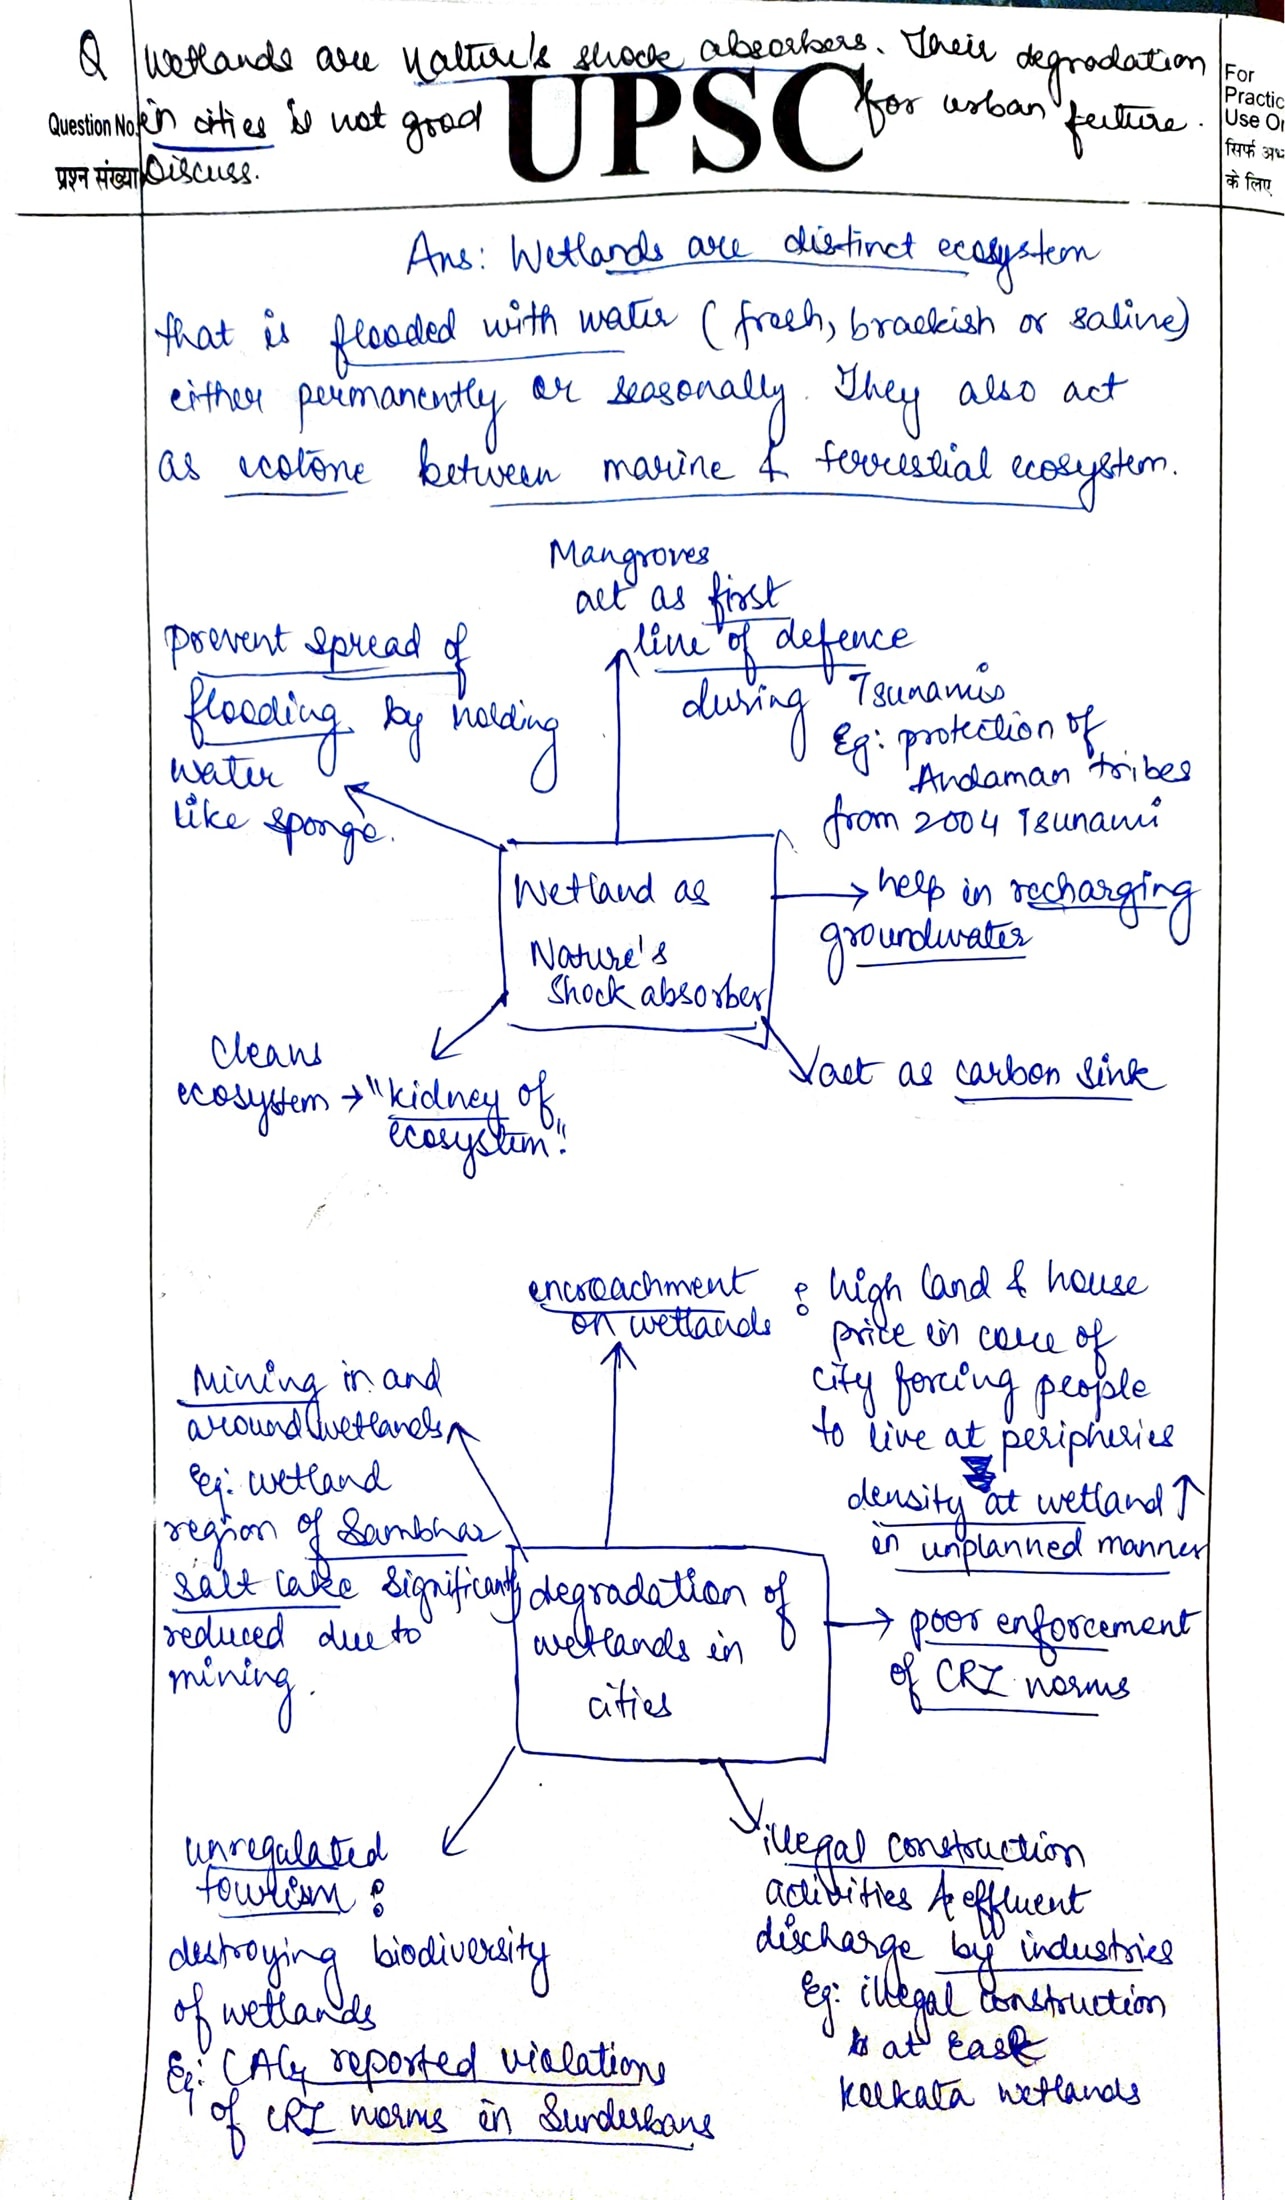 Q Wetlands are Nature's shock absorbers. Their degradation
Question No. in cities is not good for urban future.
प्रश्न संख्या Discuss.
UPSC
For
Practic
Use On
सिर्फ अभ
के लिए
Ans: Wetlands are distinct ecosystem
that is flooded with water (fresh, brackish or saline)
either permanently or seasonally. They also act
as ecotone between marine & terrestial ecosystem.
Mangroves
act as first
line of defence
during Tsunamis
Eg: protection of
Andaman tribes
from 2004 Tsunami
prevent spread of
flooding by holding
water
like sponge.
Wetland as
Nature's
Shock absorber
help in recharging
groundwater
Cleans
ecosystem → "kidney of
ecosystem".
act as carbon sink
encroachment
on wetlands :
high land & house
price in core of
city forcing people
to live at peripheries
density at wetland ↑
in unplanned manner
Mining in and
around wetlands
Eg: wetland
region of Sambhar
salt lake significantly
reduced due to
mining.
degradation of
wetlands in
cities
→ poor enforcement
of CRZ norms
unregulated
tourism :
destroying biodiversity
of wetlands
Eg: CAG reported violations
of CRZ norms in Sunderbans
illegal construction
activities & effluent
discharge by industries
Eg: illegal construction
at East
Kolkata wetlands